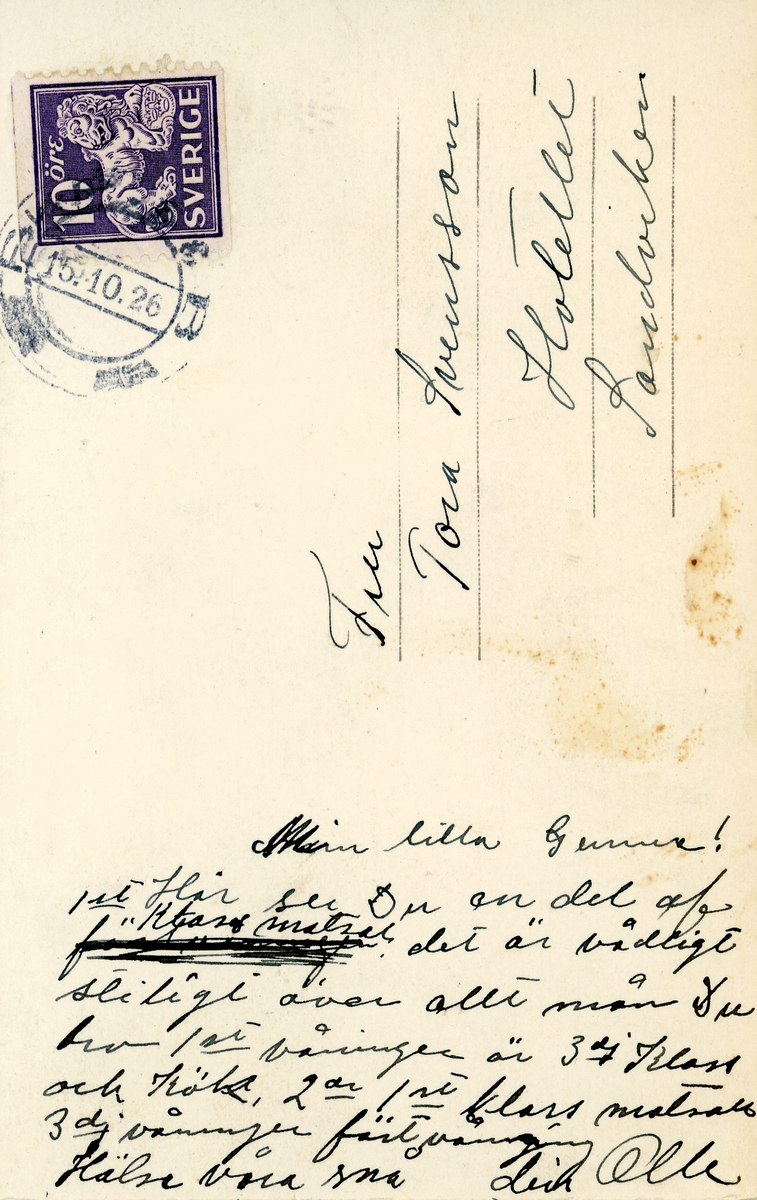 10 öre
SVERIGE
15.10.26
Fru
Tora Svensson
Hotellet
Sandviken
Min lilla Gumma!
Här ser Du en del af
1st Klass matsal
det är vådligt
stiligt över allt mån Du
tro 1st våningen är 3dj Klass
och Kök, 2dr 1st klass matsal
3dj våningen fästvåning
Hälsa våra små din Olle